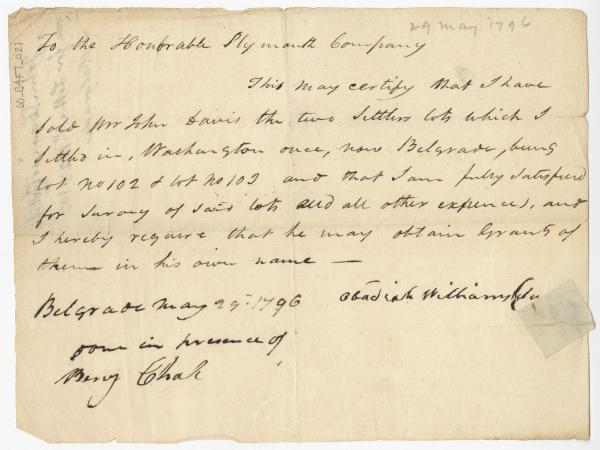 29 May 1796
60_B4F7_021
To the Honbrable Plymouth Company
This may certify that I have
Sold Mr John Davis the two Settlers lots which I
Settled in, Washington once, now Belgrade, being
lot no 102 & lot no 103 and that I am fully Satisfied
for Survey of said lots and all other expences, and
I hereby require that he may obtain Grants of
them in his own name —
Belgrade May 29: 1796 Obadiah Williams
done in presence of
Benj